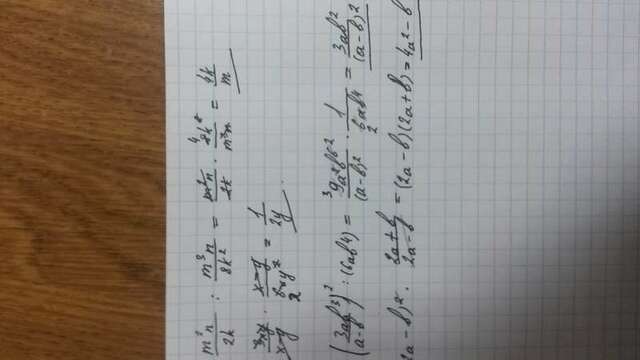 m²n/2k : m³n/8k² = m²n/2k · 8k²/m³n = 4k/m
3xy/x-y · x-y/6xy² = 1/2y
(3ab³/a-b)² : (6ab⁴) = 9a²b⁶/(a-b)² · 1/6ab⁴ = 3ab²/(a-b)²
2a-b)² · 2a+b/2a-b = (2a-b)(2a+b) = 4a²-b